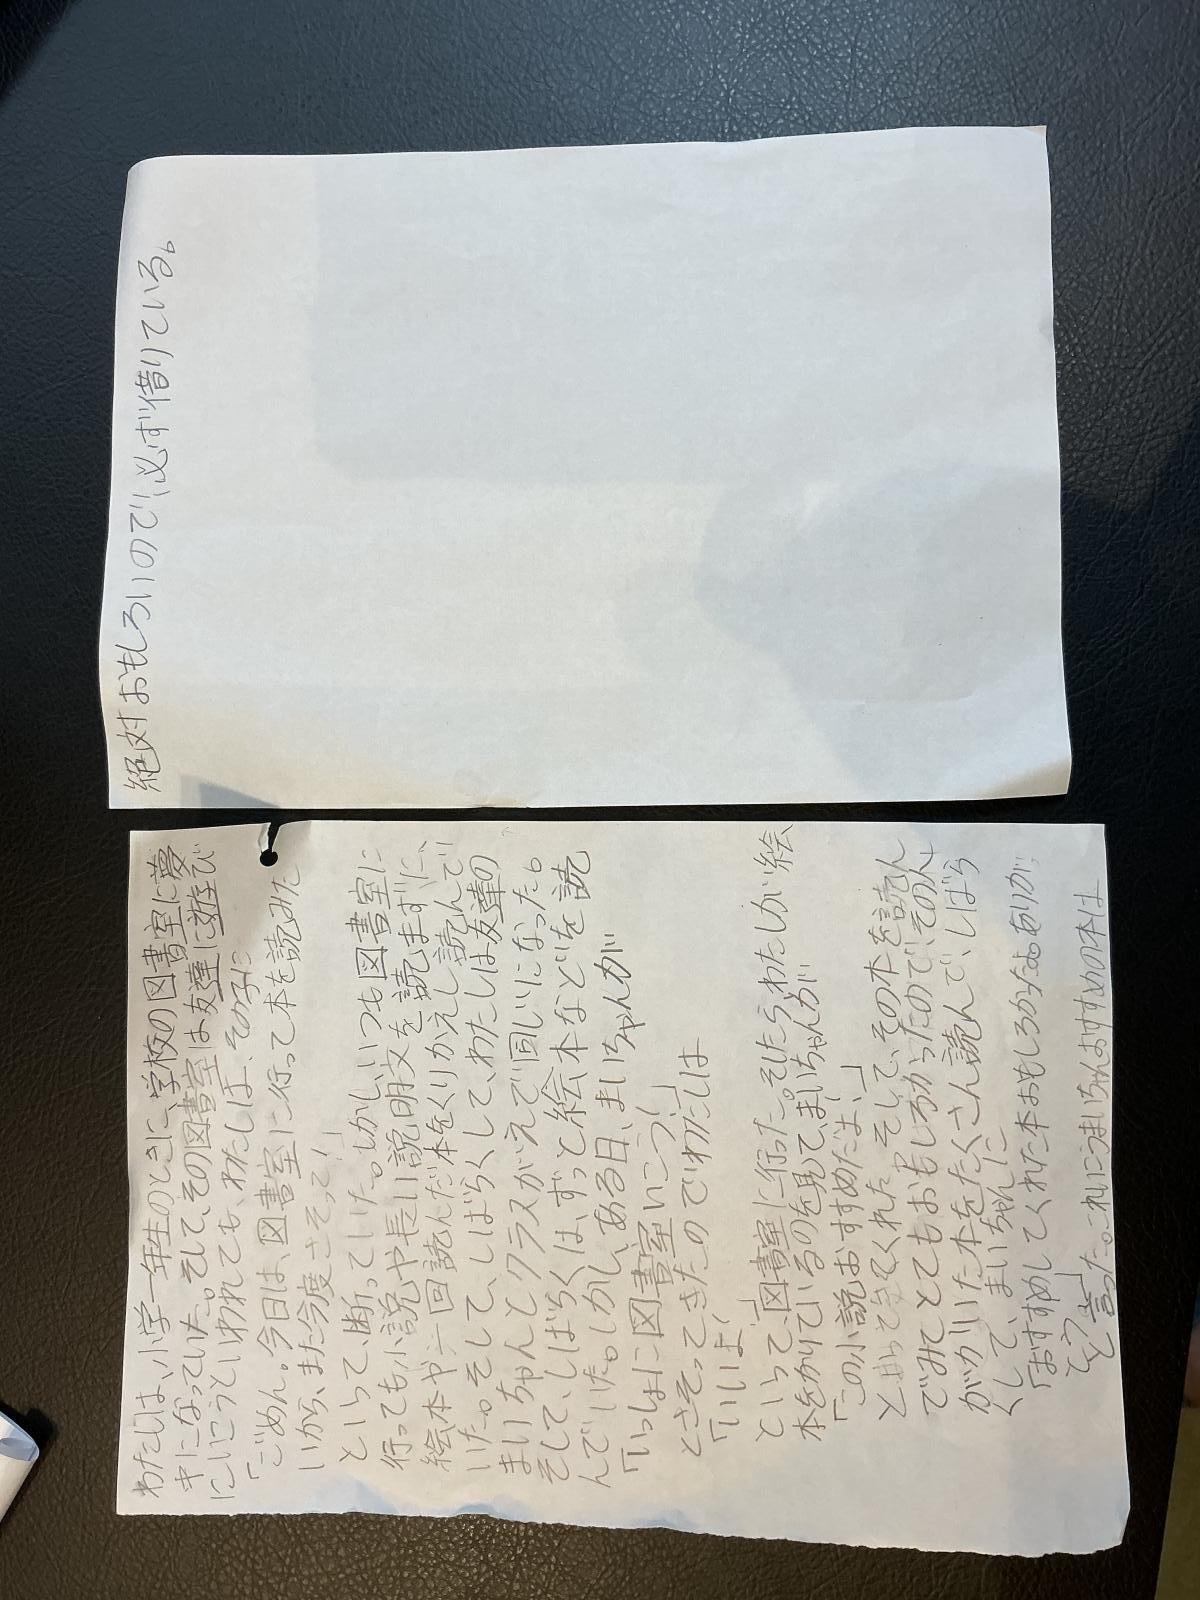 わたしは、小学一年生のときに、学校の図書室に夢
中になっていた。そして、その図書室は友達に遊び
にいこうといわれても、わたしは、その子に
「ごめん。今日は、図書室に行って本を読みた
いから、また今度さそって!」
といって、断っていた。しかし、いつも図書室に
行っても小説や長い説明文を読まずに、
絵本や 回読んだ本をくりかえし読んで
いた。そして、しばらくして、わたしは友達の
まいちゃんとクラスがえで同じになった。
そして、しばらくは、ずっと絵本などを読
んでいた。しかし、ある日、まいちゃんが
「いっしょに図書室いこう!」
とさそってきたのでわたしは
「いいよ!」
といって、図書室に行った。そしたらわたしが絵
本をかりているのを見て、まいちゃんが
「この小説おすすめだよ!」
と てくれた。そして、その本を読ん
でみてとてもおもしろかったので、その人
がかいた本をたくさん読んで、しばら
くして、まいちゃんに
「おすすめしてくれた本おもしろかったよ。ありが
とう」
と言った。 まいちゃんおすすめの本は
絶対おもしろいので、必ず借りている。